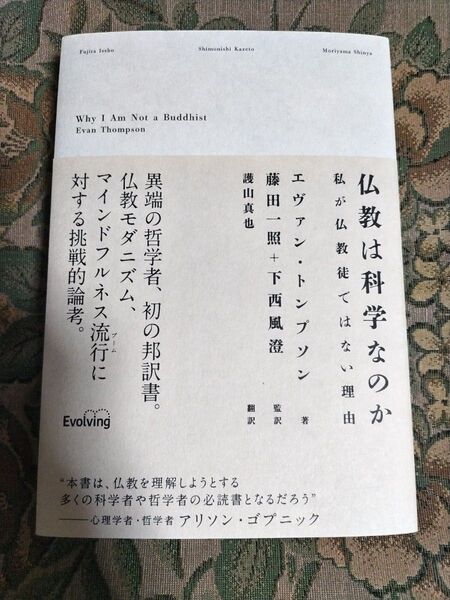 Fujita Issho
Shimonishi Kazeto
Moriyama Shinya
Why I Am Not a Buddhist
Evan Thompson
仏教は科学なのか
私が仏教徒ではない理由
エヴァン・トンプソン 著
藤田一照+下西風澄 監訳
護山真也 翻訳
異端の哲学者、初の邦訳書。
仏教モダニズム、
マインドフルネス流行に
ブーム
対する挑戦的論考。
Evolving
“本書は、仏教を理解しようとする
多くの科学者や哲学者の必読書となるだろう”
――心理学者・哲学者 アリソン・ゴプニック